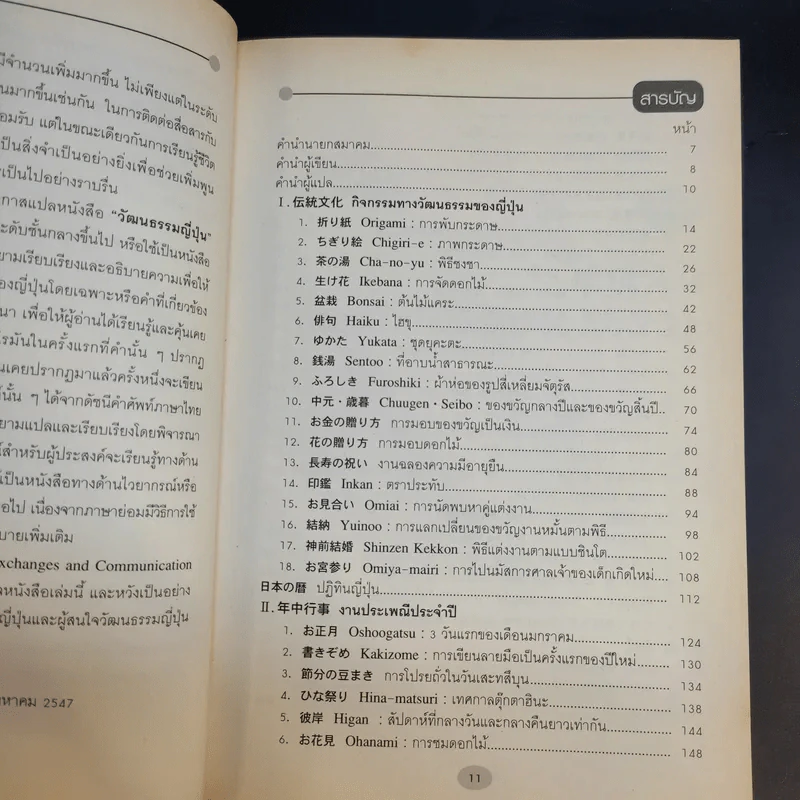 มีจำนวนเพิ่มมากขึ้น ไม่เพียงแต่ในระดับ
นมากขึ้นเช่นกัน ในการติดต่อสื่อสารกับ
อมรับ แต่ในขณะเดียวกันการเรียนรู้ชีวิต
เป็นสิ่งจำเป็นอย่างยิ่งเพื่อช่วยเพิ่มพูน
เป็นไปอย่างราบรื่น
กาสแปลหนังสือ "วัฒนธรรมญี่ปุ่น"
ะดับชั้นกลางขึ้นไป หรือใช้เป็นหนังสือ
ยามเรียบเรียงและอธิบายความเพื่อให้
องญี่ปุ่นโดยเฉพาะหรือคำที่เกี่ยวข้อง
นา เพื่อให้ผู้อ่านได้เรียนรู้และคุ้นเคย
โรมันในครั้งแรกที่คำนั้น ๆ ปรากฏ
นเคยปรากฏมาแล้วครั้งหนึ่งจะเขียน
นั้น ๆ ได้จากดัชนีคำศัพท์ภาษาไทย
ยามแปลและเรียบเรียงโดยพิจารณา
์สำหรับผู้ประสงค์จะเรียนรู้ทางด้าน
เป็นหนังสือทางด้านไวยากรณ์หรือ
อไป เนื่องจากภาษาย่อมมีวิธีการใช้
บายเพิ่มเติม
xchanges and Communication
ลหนังสือเล่มนี้ และหวังเป็นอย่าง
ญี่ปุ่นและผู้สนใจวัฒนธรรมญี่ปุ่น
หาคม 2547
สารบัญ
หน้า
คำนำนายกสมาคม 7
คำนำผู้เขียน 8
คำนำผู้แปล 10
I. 伝統文化 กิจกรรมทางวัฒนธรรมของญี่ปุ่น
1. 折り紙 Origami : การพับกระดาษ 14
2. ちぎり絵 Chigiri-e : ภาพกระดาษ 22
3. 茶の湯 Cha-no-yu : พิธีชงชา 26
4. 生け花 Ikebana : การจัดดอกไม้ 32
5. 盆栽 Bonsai : ต้นไม้แคระ 42
6. 俳句 Haiku : ไฮขุ 48
7. ゆかた Yukata : ชุดยุคะตะ 56
8. 銭湯 Sentoo : ที่อาบน้ำสาธารณะ 62
9. ふろしき Furoshiki : ผ้าห่อของรูปสี่เหลี่ยมจัตุรัส 66
10. 中元・歳暮 Chuugen・Seibo : ของขวัญกลางปีและของขวัญสิ้นปี.. 70
11. お金の贈り方 การมอบของขวัญเป็นเงิน 74
12. 花の贈り方 การมอบดอกไม้ 80
13. 長寿の祝い งานฉลองความมีอายุยืน 84
14. 印鑑 Inkan : ตราประทับ 88
15. お見合い Omiai : การนัดพบหาคู่แต่งงาน 94
16. 結納 Yuinoo : การแลกเปลี่ยนของขวัญงานหมั้นตามพิธี 98
17. 神前結婚 Shinzen Kekkon : พิธีแต่งงานตามแบบชินโต 102
18. お宮参り Omiya-mairi : การไปนมัสการศาลเจ้าของเด็กเกิดใหม่.... 108
日本の暦 ปฏิทินญี่ปุ่น 112
II. 年中行事 งานประเพณีประจำปี
1. お正月 Oshoogatsu : 3 วันแรกของเดือนมกราคม 124
2. 書きぞめ Kakizome : การเขียนลายมือเป็นครั้งแรกของปีใหม่ 130
3. 節分の豆まき การโปรยถั่วในวันเสะทสึบุน 134
4. ひな祭り Hina-matsuri : เทศกาลตุ๊กตาฮินะ 138
5. 彼岸 Higan : สัปดาห์ที่กลางวันและกลางคืนยาวเท่ากัน 144
6. お花見 Ohanami : การชมดอกไม้ 148
11